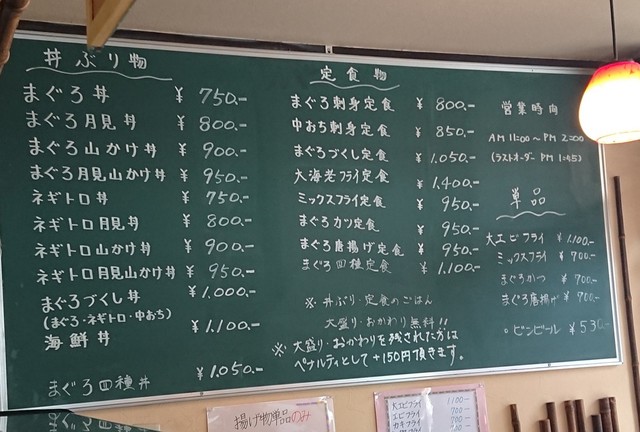 丼ぶり物
まぐろ丼 ¥750.-
まぐろ月見丼 ¥800.-
まぐろ山かけ丼 ¥900.-
まぐろ月見山かけ丼 ¥950.-
ネギトロ丼 ¥750.-
ネギトロ月見丼 ¥800.-
ネギトロ山かけ丼 ¥900.-
ネギトロ月見山かけ丼 ¥950.-
まぐろづくし丼 ¥1.000.-
(まぐろ・ネギトロ・中おち)
海鮮丼 ¥1.100.-
まぐろ四種丼 ¥1.050.-
定食物
まぐろ刺身定食 ¥800.-
中おち刺身定食 ¥850.-
まぐろづくし定食 ¥1.050.-
大海老フライ定食 ¥1.400.-
ミックスフライ定食 ¥950.-
まぐろカツ定食 ¥950.-
まぐろ唐揚げ定食 ¥950.-
まぐろ四種定食 ¥1.100.-
※丼ぶり・定食のごはん
大盛り・おかわり無料!!
※大盛り・おかわりを残された方は
ペナルティとして+150円頂きます。
営業時間
AM 11:00〜PM 2:00
(ラストオーダー PM 1:45)
単品
大エビフライ ¥1.100.-
ミックスフライ ¥700.-
まぐろかつ ¥700.-
まぐろ唐揚げ ¥700.-
○ビンビール ¥530.-
揚げ物単品のみ
大エビフライ 1100-
エビフライ 700-
カキフライ 700-